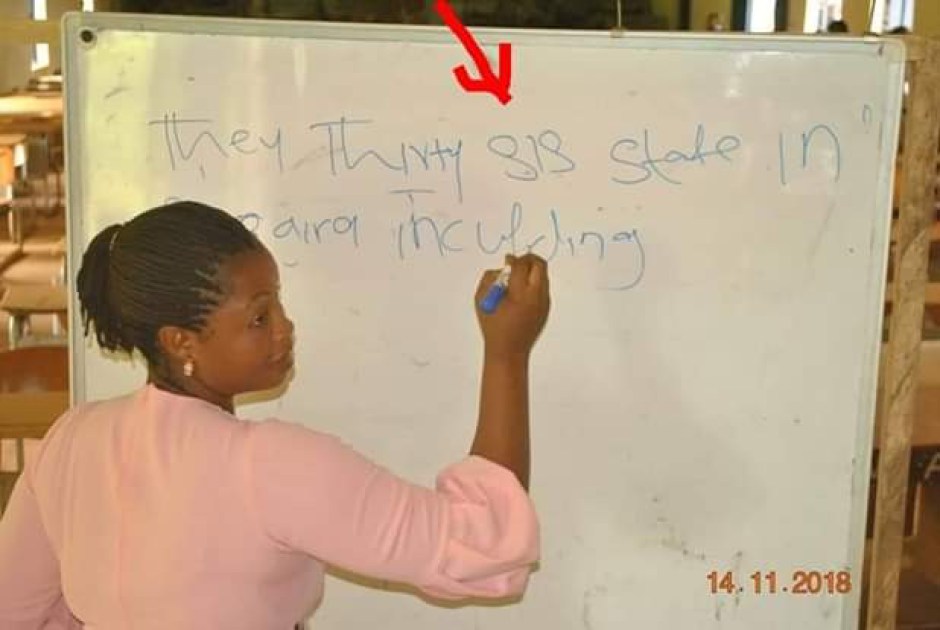 They Thirty SIS state in
incuding
14.11.2018